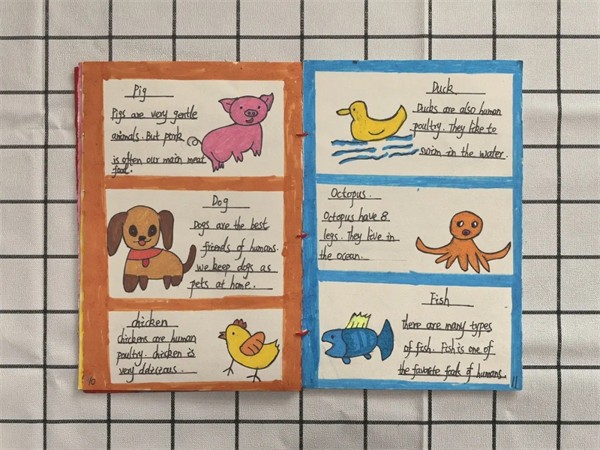 Pig
Pigs are very gentle
animals. But pork
is often our main meat
food.
Dog
Dogs are the best
friends of humans.
we keep dogs as
pets at home.
chicken
chickens are human
poultry. chicken is
very deliceous.
10
Duck
Ducks are also human
poultry. They like to
swim in the water.
Octopus.
Octopus have 8
legs. They live in
the ocean.
Fish
there are many types
of fish. Fish is one of
the favorite foods of humans.
11